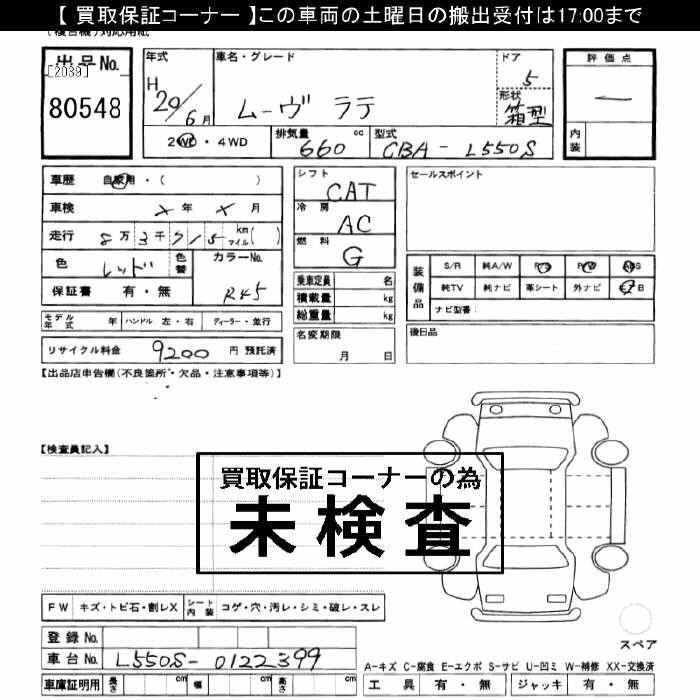 【 買取保証コーナー 】この車両の土曜日の搬出受付は17:00まで
出品No.
[2039]
80548
年式
H 20/6月
車名・グレード
ムーヴ ラテ
ドア
5
形状
箱型
評価点
一
内装
2WD・4WD
排気量 cc
660
型式
CBA - L550S
車歴 自家用・( )
車検 × 年 × 月
走行 8万 3千 715 km マイル ( )
色 レッド 色替
カラーNo.
R45
保証書 有・無
シフト
CAT
冷房
AC
燃料
G
乗車定員 名
積載量 kg
総重量 kg
セールスポイント
装備品
S/R 純A/W
純TV 純ナビ 革シート 外ナビ
ナビ型番:
モデル年式 年 ハンドル 左・右 ディーラー・並行
名変期限
月 日
後日品
リサイクル料金 9200 円 預託済
【出品店申告欄(不良箇所・欠品・注意事項等)】
【検査員記入】
買取保証コーナーの為
未検査
FW キズ・トビ石・割レX シート内装 コゲ・穴・汚レ・シミ・破レ・スレ
スペア
登録No.
車台No. L550S-0122399
A-キズ C-腐食 E-エクボ S-サビ U-凹ミ W-補修 XX-交換済
車庫証明用 長さ cm 幅 cm 高さ cm
工具 有・無 ジャッキ 有・無